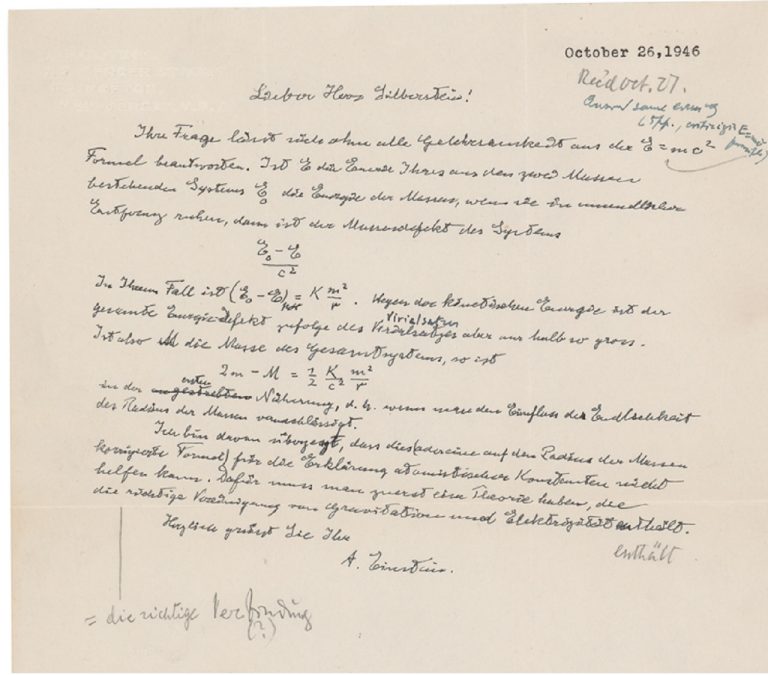 October 26, 1946
Rec'd Oct. 27.
Lieber Herr Silberstein!
Ihre Frage lässt sich ohne alle Gelehrsamkeit aus der E = mc²
Formel beantworten. Ist E die Energie Ihres aus den zwei Massen
bestehenden Systems E₀ die Energie der Massen, wenn sie in unendlicher
Entfernung ruhen, dann ist der Massendefekt des Systems
E₀ − E
c²
In Ihrem Fall ist (E₀ − E) = K m²/r . Wegen der kinetischen Energie ist der
Virialsatzes
gesamte Energiedefekt zufolge des Virialsatzes aber nur halb so gross.
Ist also M die Masse des Gesamtsystems, so ist
2m − M = 1/2 K/c² m²/r
ersten
in der Näherung, d. h. wenn man den Einfluss der Endlichkeit
des Radius der Massen vernachlässigt.
Ich bin davon überzeugt, dass dies (oder eine auf den Radius der Massen
korrigierte Formel) für die Erklärung atomistischer Konstanten nicht
helfen kann. Dafür muss man zuerst eine Theorie haben, die
die richtige Vereinigung von Gravitation und Elektrizität enthält.
enthält
Herzlich grüsst Sie Ihr
A. Einstein.
= die richtige Verbindung
(?)